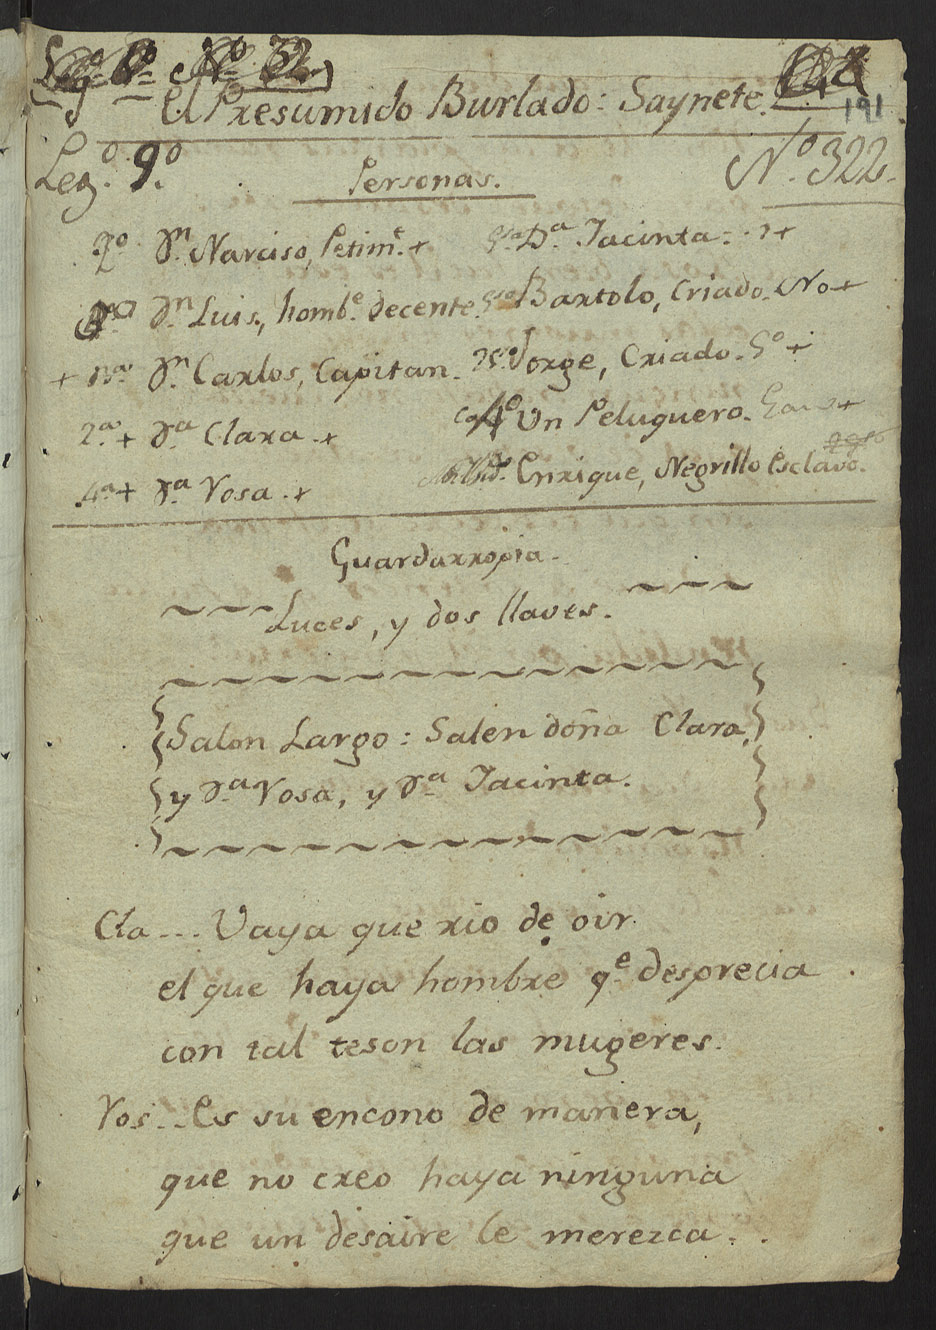 El Presumido Burlado: Saynete.
191
Leg.º 9.º
Nº. 322.
Personas.
2º Dn. Narciso, Petime. +
Dª. Jacinta. +
Dn. Luis, hombe. decente.
Bartolo, Criado. No +
+ Dn. Carlos, Capitan.
Jorge, Criado. 5º +
2.ª + Dª. Clara. +
4º Un Peluquero. +
4.ª + Dª. Rosa. +
Enrique, Negrillo Esclavo.
Guardarropia.
Luces, y dos llaves.
Salon Largo: Salen doña Clara,
y Dª. Rosa, y Dª. Jacinta.
Cla... Vaya que rio de oir
el que haya hombre qe. desprecia
con tal teson las mugeres.
Ros.. Es su encono de manera,
que no creo haya ninguna
que un desaire le merezca.